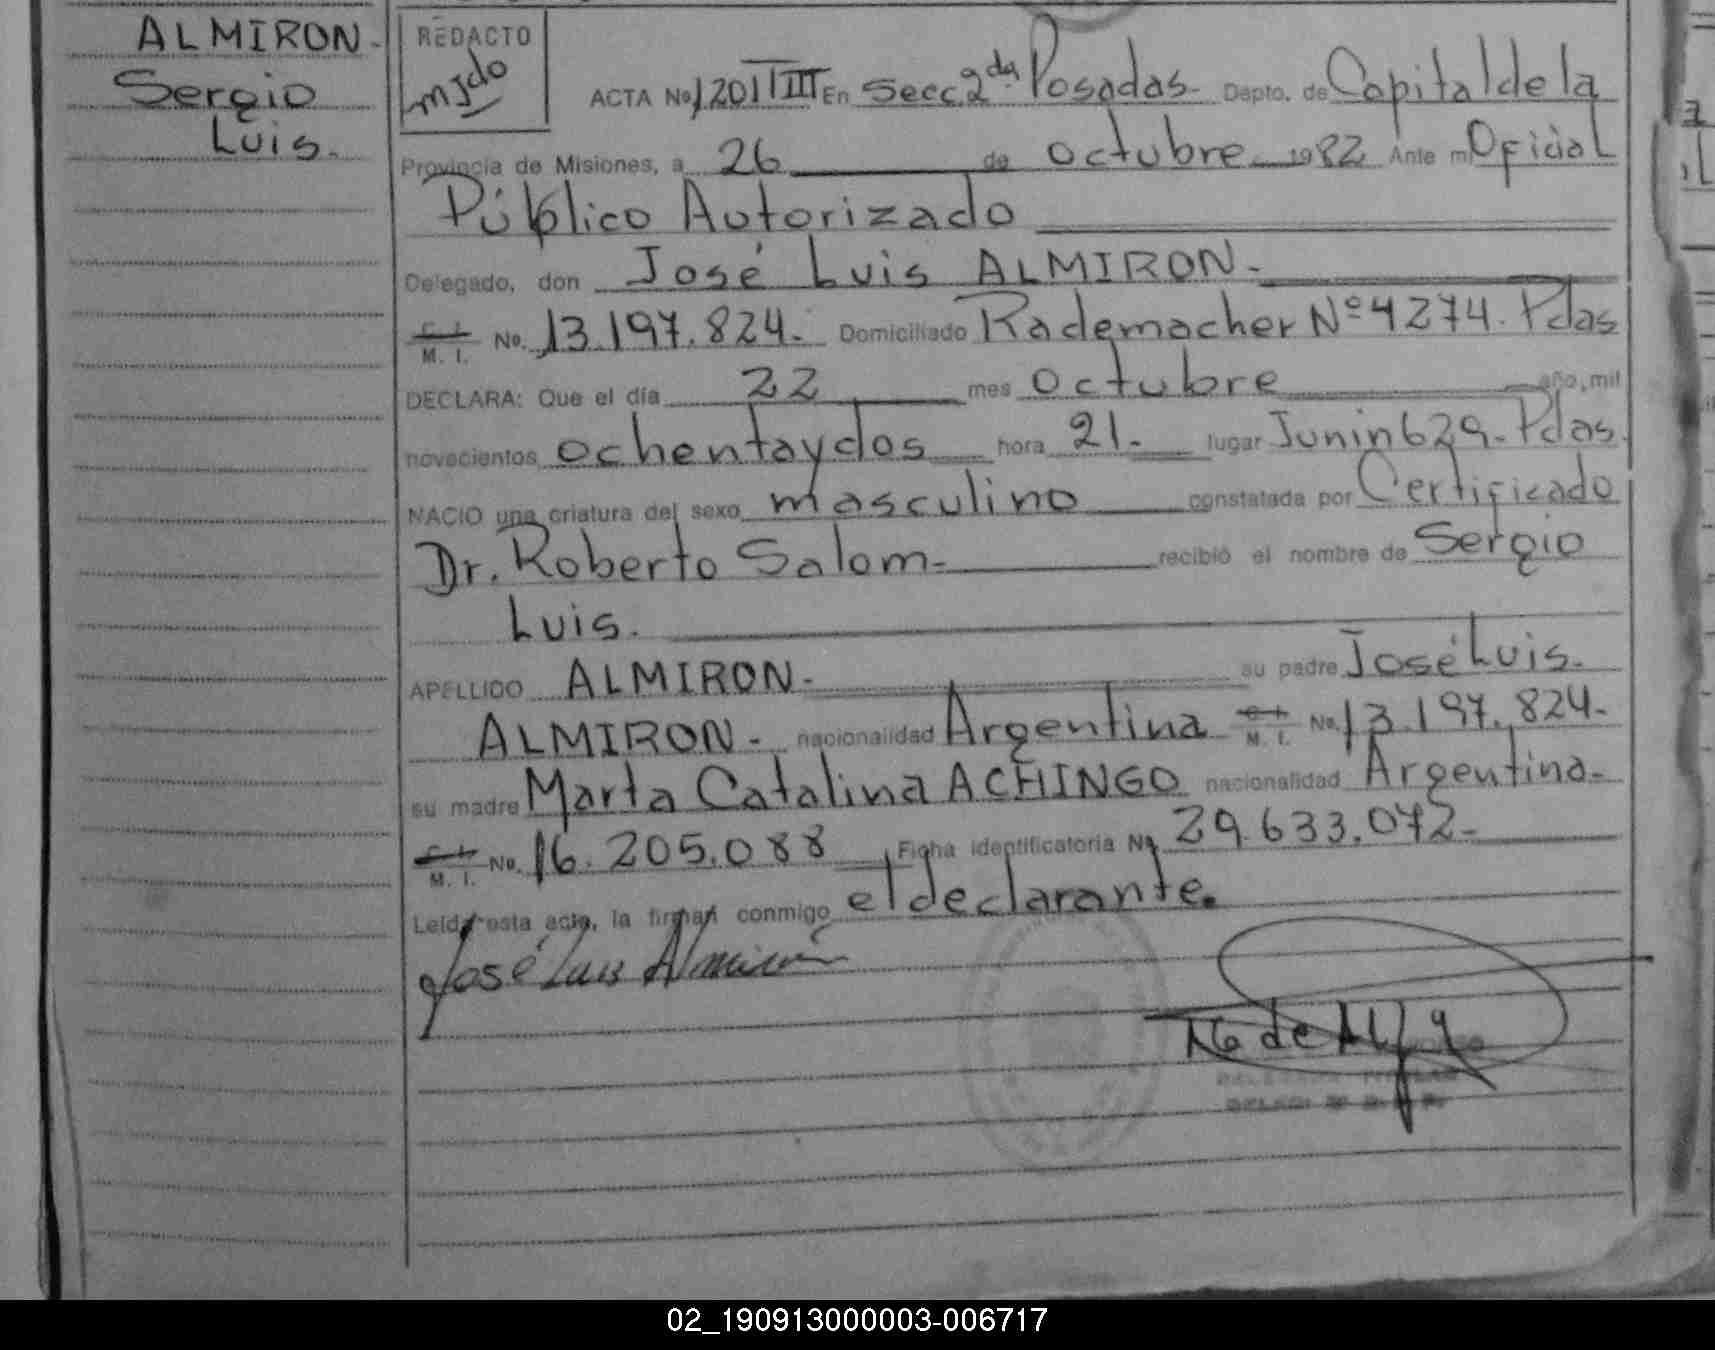 ALMIRON-
Sergio
Luis.
REDACTO
ACTA No 1201 TIII En Secc. 2da. Posadas- Depto. de Capital de la
Provincia de Misiones, a 26 de octubre 1982 Ante mi Oficial
Público Autorizado
Delegado, don José Luis ALMIRON-
C. I. M. I. No. 13.197.824. Domiciliado Rademacher Nº 4274. Pdas
DECLARA: Que el día 22 mes octubre año, mil
novecientos ochentaydos hora 21.- lugar Junin 629- Pdas.
NACIO una criatura del sexo masculino constatada por Certificado
Dr. Roberto Salom- recibió el nombre de Sergio
Luis.
APELLIDO ALMIRON- su padre José Luis.
ALMIRON- nacionalidad Argentina C. I. M. I. No. 13.197.824-
su madre Marta Catalina ACHINGO nacionalidad Argentina-
C. I. M. I. No. 16.205.088 Ficha identificatoria Nº 29.633.072-
Leída esta acta, la firman conmigo el declarante.
José Luis Almirón
02_190913000003-006717